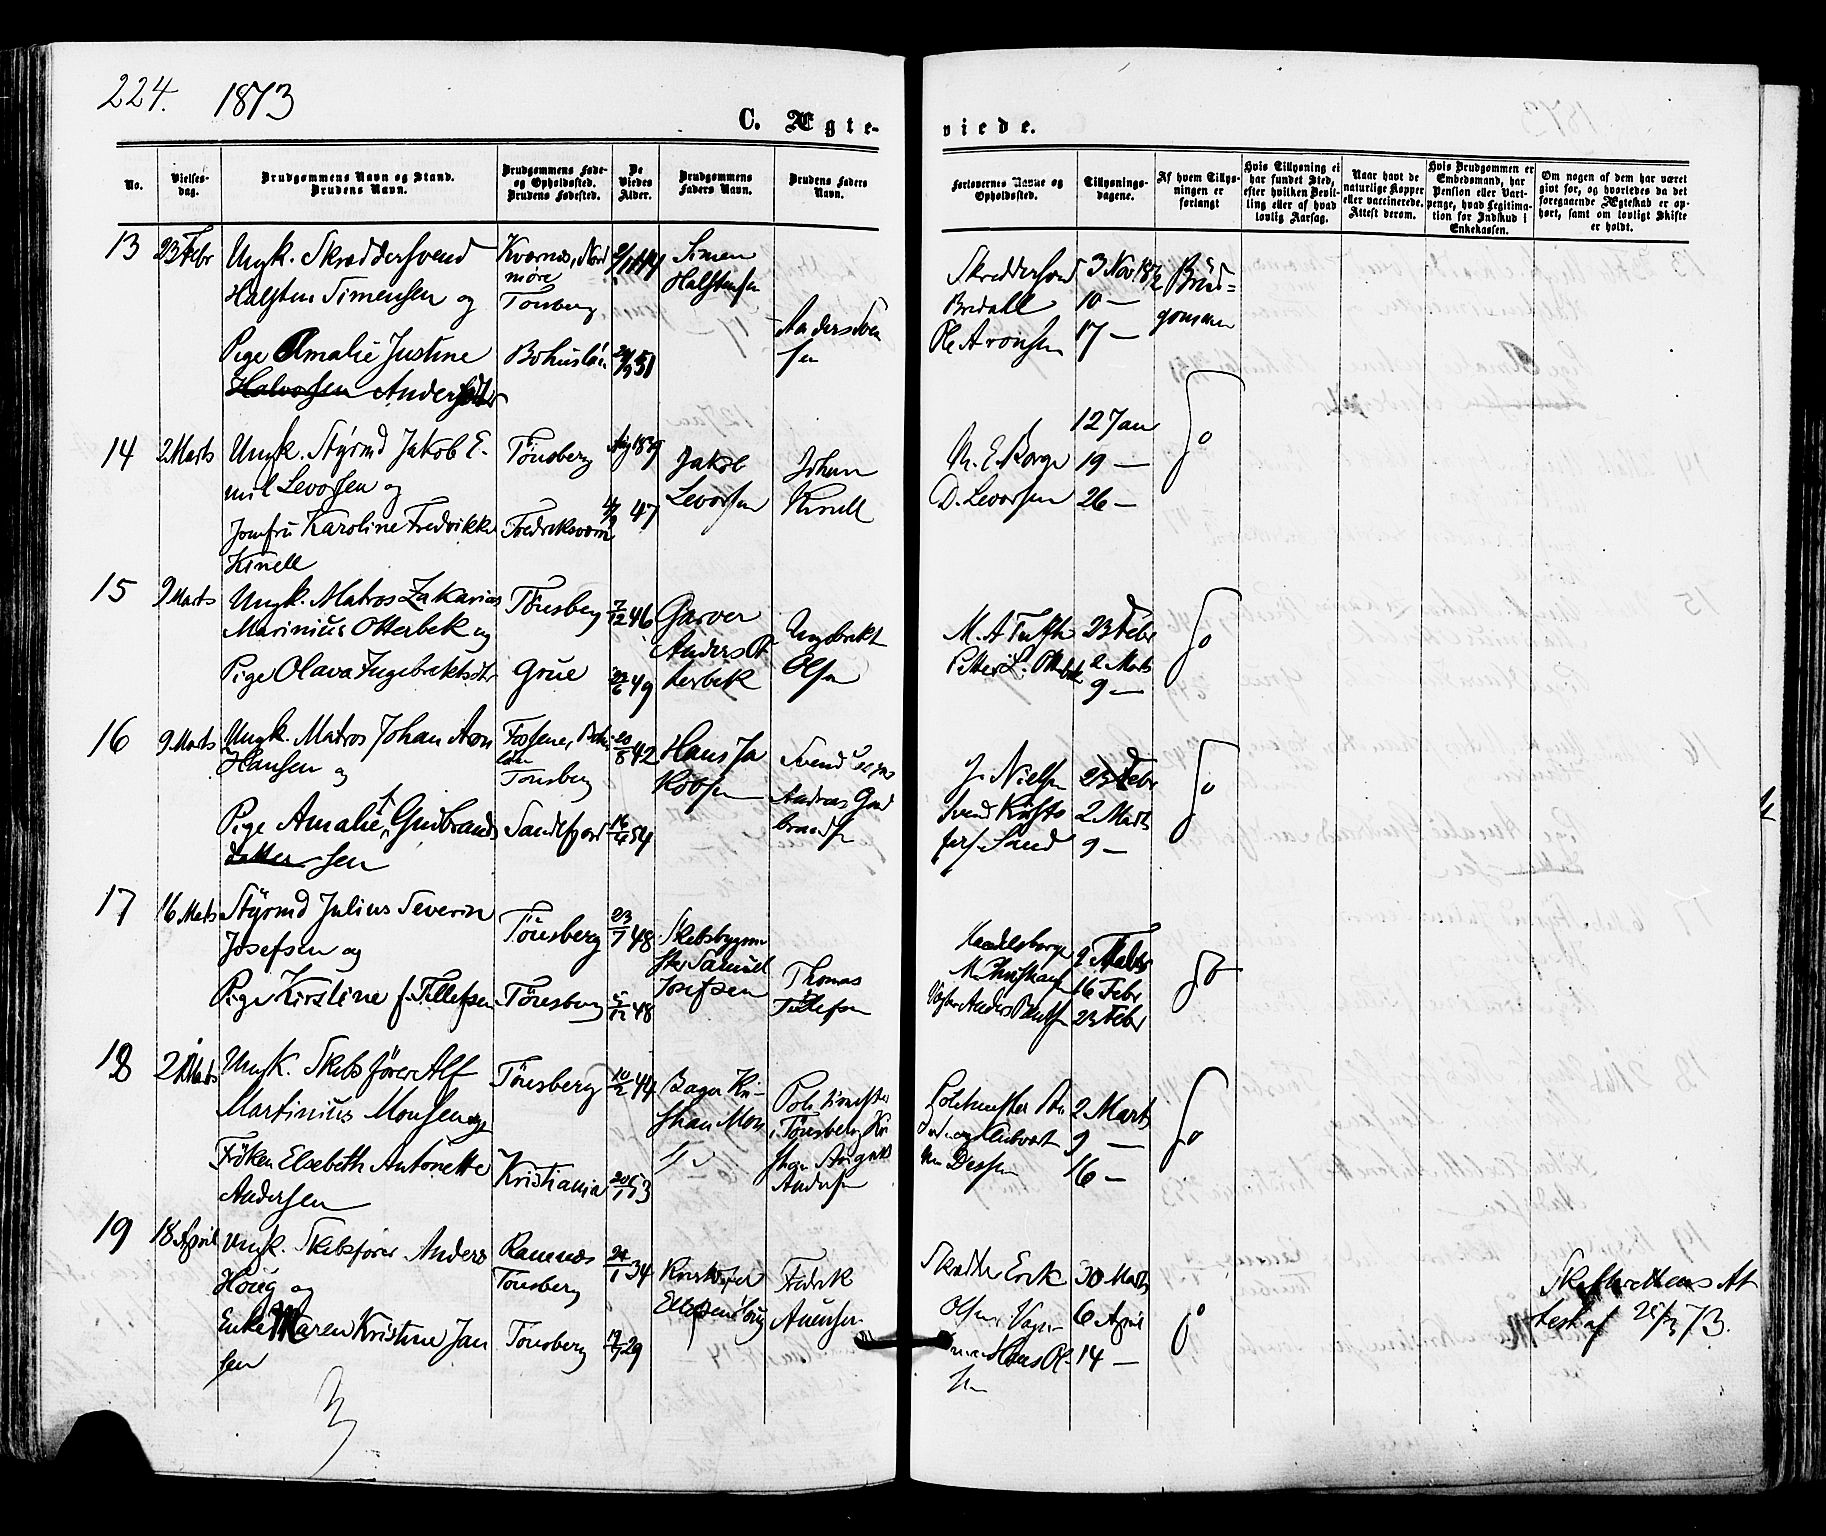 224. 1873
C. Ægte-
viede.
No.
Vielses-
dag.
Brudgommens Navn og Stand.
Brudens Navn.
Brudgommens Føde-
og Opholdssted.
Brudens Fødested.
De
Viedes
Alder.
Brudgommens
Faders Navn.
Brudens Faders
Navn.
Forlovernes Navne og
Opholdssted.
Tillysnings-
dagene.
Af hvem Tillys-
ningen er
forlangt
Hvis Tillysning ei
har fundet Sted,
efter hvilken Bevil-
ling eller af hvad
lovlig Aarsag.
Naar havt de
naturlige Kopper
eller vaccinerede.
Attest derom.
Hvis Brudgommen er
Embedsmand, har
Pension eller Vart-
penge, hvad Legitima-
tion for Indskud i
Enkekassen.
Om nogen af dem har været
givt for, og hvorledes da det
foregaaende Ægteskab er op-
hørt, samt om lovligt Skifte
er holdt.
13
23 Febr
Ungk. Skræddersvend
Halsten Simensen og
Pige Amalie Justine
Halvorsen Andersdtr
Kværnes, Nord
møre
Tønsberg
Bohuslän
51
Simen
Halstensen
Anders Sven
sen
Bredahl
Ole Aronsen
3 Nov 1872
10 —
17 —
Brud=
gommen
14
2 Marts
Ungk. Styrmd Jakob E.
mil Levorsen og
Jomfru Karoline Fredrikke
Kinell
Tønsberg
Fredriksværn
Aug 1839
47
Jakob
Levorsen
Johan
Kinell
M. E. Borge
D. Levorsen
12 Jan
19 —
26 —
do
15
9 Marts
Ungk. Matros Zakarias
Marinius Otterbek og
Pige Olava Ingebrektsdtr
Tønsberg
Grue
7/12 46
49
Garver
Anders Ot
terbek
Ingebrekt
Olsen
M. A Tufte
Petter L. Otterbek
23 Febr
2 Marts
9 —
do
16
9 Marts
Ungk. Matros Johan Aron
Hansen og
Pige Amalie Gudbrands
datter sen
Fossene, Bohu
län
Tønsberg
Sandefjord
20/8 42
54
Hans Ja
kobsen
Svend
Andreas Gud
brandsen
J. Nielsen
Svend
Sand
23 Febr
2 Marts
9 —
do
17
16 Marts
Styrmd Julius Severin
Josefsen og
Pige Kirstine f. Tellefsen
Tønsberg
Tønsberg
23/7 48
5/12 48
Skibsbygm
ster Samuel
Josefsen
Thomas
Tellefsen
Handelsborger
M. Christiansen
Anders Bentsen
9 Febr
16 Febr
23 Febr
do
18
Marts
Ungk. Skibsfører Alf
Martinius Monsen og
Frøken Elsebeth Antonette
Andersen
Tønsberg
Kristiania
10/2 44
20/1 53
Bager Kri-
stian Mon
sen
Politimester
i Tønsberg Kri
stian August
Andersen
Politmester An
Dessen
2 Marts
9 —
16 —
do
19
18 April
Ungk. Skibsfører Anders
Houg og
Enke Maren Kristine Jan
sen
Ramnes
Tønsberg
Tønsberg
34
29
Kristoffer
Ellefsen Houg
Fredrik
Amensen
Skrædder Erik
Olsen, Vogn-
mand Hans Ol-
sen
30 Marts
6 April
14 —
do
Skifterettens At
test af 73.